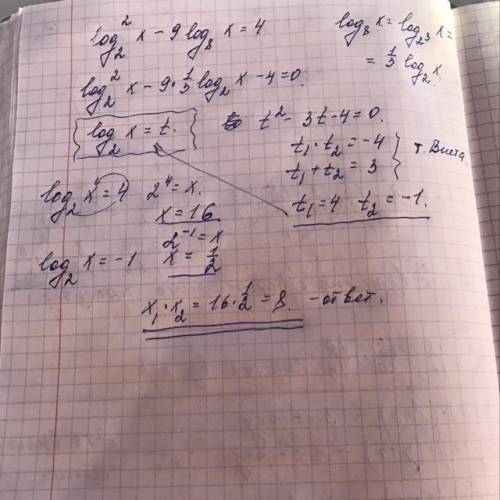 log₂² x - 9 log₈ x = 4
log₈ x = log₂³ x =
= 1/3 log₂ x
log₂² x - 9 · 1/3 log₂ x - 4 = 0.
log₂ x = t.
t² - 3t - 4 = 0.
t₁ · t₂ = -4
t₁ + t₂ = 3
т. Виета
t₁ = 4 t₂ = -1.
log₂ x = 4 2⁴ = x.
x = 16
log₂ x = -1
2⁻¹ = x
x = 1/2
x₁ · x₂ = 16 · 1/2 = 8. - ответ.